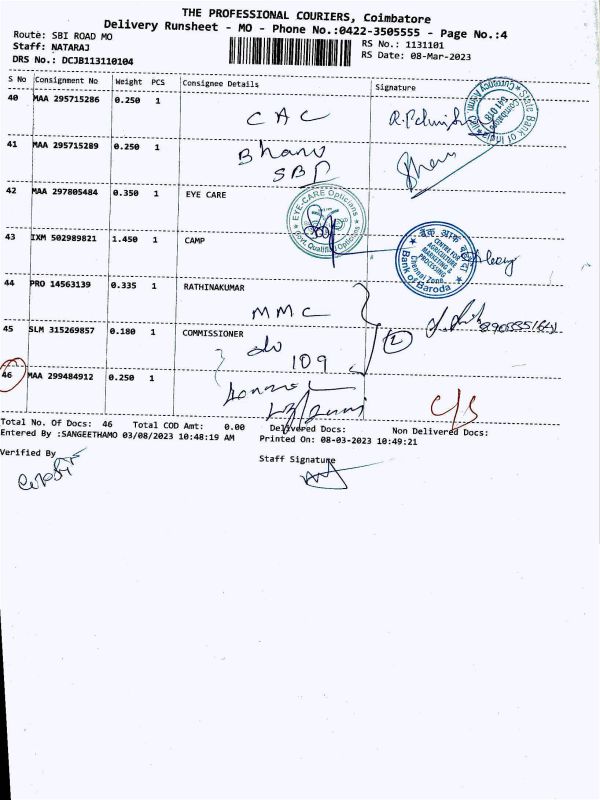 THE PROFESSIONAL COURIERS, Coimbatore
Delivery Runsheet - MO - Phone No.:0422-3505555 - Page No.:4
Route: SBI ROAD MO
RS No.: 1131101
Staff: NATARAJ
RS Date: 08-Mar-2023
DRS No.: DCJB113110104
S No Consignment No Weight PCS Consignee Details Signature
40 MAA 295715286 0.250 1
CAC
State Bank of India
Coimbatore
641 018
41 MAA 295715289 0.250 1
Bhanu
SBI
42 MAA 297805484 0.350 1 EYE CARE
EYE-CARE Opticians
Govt. Qualified Opticians
43 IXM 502989821 1.450 1 CAMP
बैंक ऑफ़ बड़ौदा
CENTRE FOR
AGRICULTURE
MARKETING &
PROCESSING
Chennai Zone
Bank of Baroda
44 PRO 14563139 0.335 1 RATHINAKUMAR
MMC
45 SLM 315269857 0.180 1 COMMISSIONER
do
109
2
46 MAA 299484912 0.250 1
C/S
Total No. Of Docs: 46 Total COD Amt: 0.00 Delivered Docs: Non Delivered Docs:
Entered By :SANGEETHAMO 03/08/2023 10:48:19 AM Printed On: 08-03-2023 10:49:21
Verified By
Staff Signature